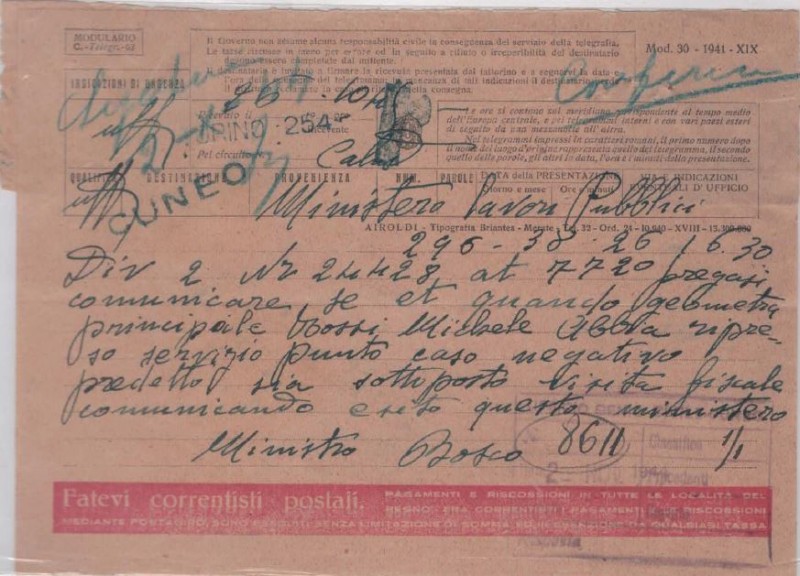 MODULARIO
C. - Telegr. - 93
Il Governo non assume alcuna responsabilità civile in conseguenza del servizio della telegrafia.
Le tasse riscosse in meno per errore od in seguito a rifiuto o irreperibilità del destinatario
devono essere completate dal mittente.
Mod. 30 - 1941 - XIX
INDICAZIONI DI URGENZA
26 10
Ricevuto il
TORINO 254
Pel circuito
ricevente
Le ore si contano sul meridiano corrispondente al tempo medio
dell'Europa centrale, e pei telegrammi interni e con vari paesi esteri
di seguito da una mezzanotte all'altra.
Nei telegrammi impressi in caratteri romani, il primo numero dopo
il nome del luogo d'origine rappresenta quello del telegramma, il secondo
quello delle parole, gli altri la data, l'ora e i minuti della presentazione.
QUALIFICA DESTINAZIONE PROVENIENZA NUM. PAROLE DATA della PRESENTAZIONE VIA E INDICAZIONI
Giorno e mese Ore e minuti EVENTUALI D'UFFICIO
CUNEO
Ministero Lavori Pubblici
AIROLDI - Tipografia Briantea - Merate - Tel. 32 - Ord. 24 - 10.940 - XVIII - 15.300.000
296 - 38 - 26 16.30
Div 2 Nr 24428 at 7720 pregasi
comunicare se et quando geometra
principale Rossi Michele abbia ripre=
so servizio punto caso negativo
predetto sia sottoposto visita fiscale
comunicando esito questo ministero
Ministro Bosco
8611
Classifica
1/1
2
Precedenti
Fatevi correntisti postali.
PAGAMENTI E RISCOSSIONI IN TUTTE LE LOCALITÀ DEL
REGNO. FRA CORRENTISTI I PAGAMENTI E LE RISCOSSIONI
MEDIANTE POSTAGIRO, SONO ESEGUITI SENZA LIMITAZIONE DI SOMMA ED IN ESENZIONE DA QUALSIASI TASSA